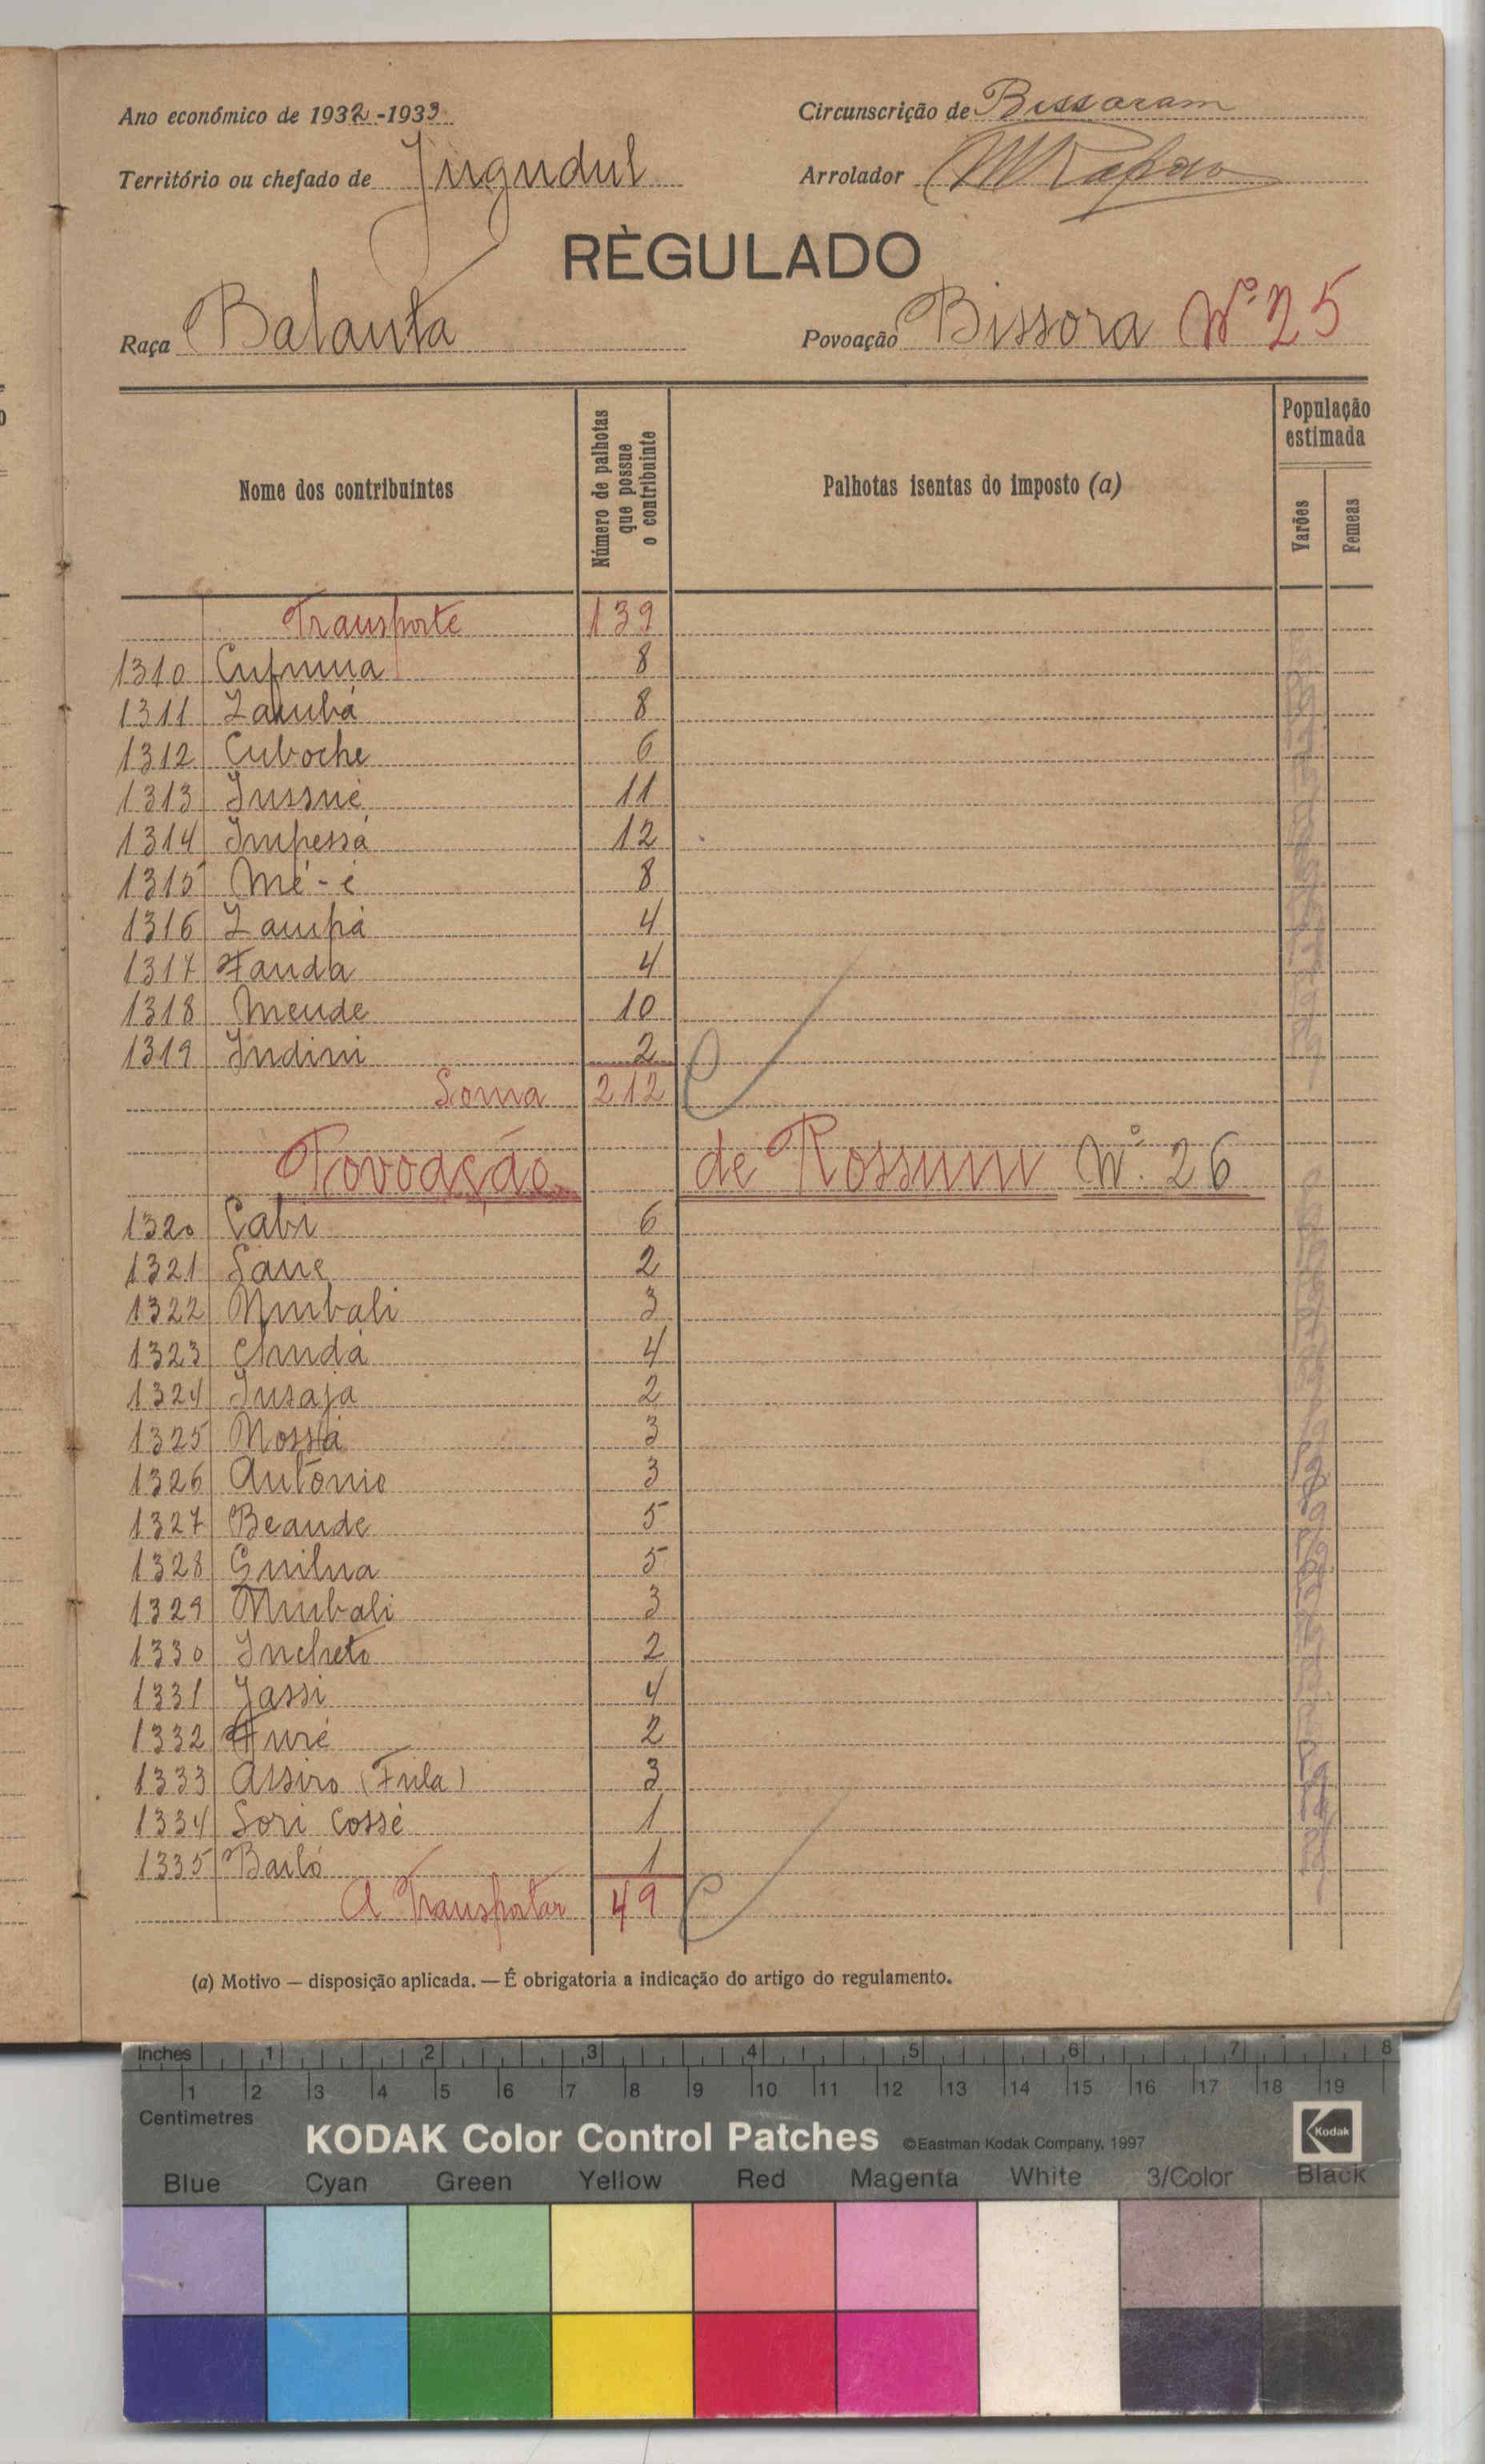 Ano económico de 1932-1933
Circunscrição de Bissoram
Território ou chefado de Jugudul
Arrolador
RÈGULADO
Raça Balanta
Povoação Bissora Nº 25
Nome dos contribuintes
Número de palhotas que possue o contribuinte
Palhotas isentas do imposto (a)
População estimada
Varões
Femeas
Transporte 139
1310 8
1311 Zambá 8
1312 Cuboche 6
1313 Jussné 11
1314 Impessá 12
1315 Mé-é 8
1316 Zampá 4
1317 Fanda 4
1318 Mende 10
1319 Indini 2
Soma 212
Povoação de Rossum Nº 26
1320 Cabi 6
1321 Sane 2
1322 Mubali 3
1323 4
1324 Insaja 2
1325 Mossá 3
1326 António 3
1327 Beande 5
1328 5
1329 Mubali 3
1330 Incheto 2
1331 Jassi 4
1332 Furé 2
1333 Assiro (Fula) 3
1334 Sori Cossé 1
1335 Bailó 1
A Transportar 49
(a) Motivo — disposição aplicada. — É obrigatoria a indicação do artigo do regulamento.
Inches 1 2 3 4 5 6 7 8
1 2 3 4 5 6 7 8 9 10 11 12 13 14 15 16 17 18 19
Centimetres
KODAK Color Control Patches ©Eastman Kodak Company, 1997
Kodak
Blue Cyan Green Yellow Red Magenta White 3/Color Black